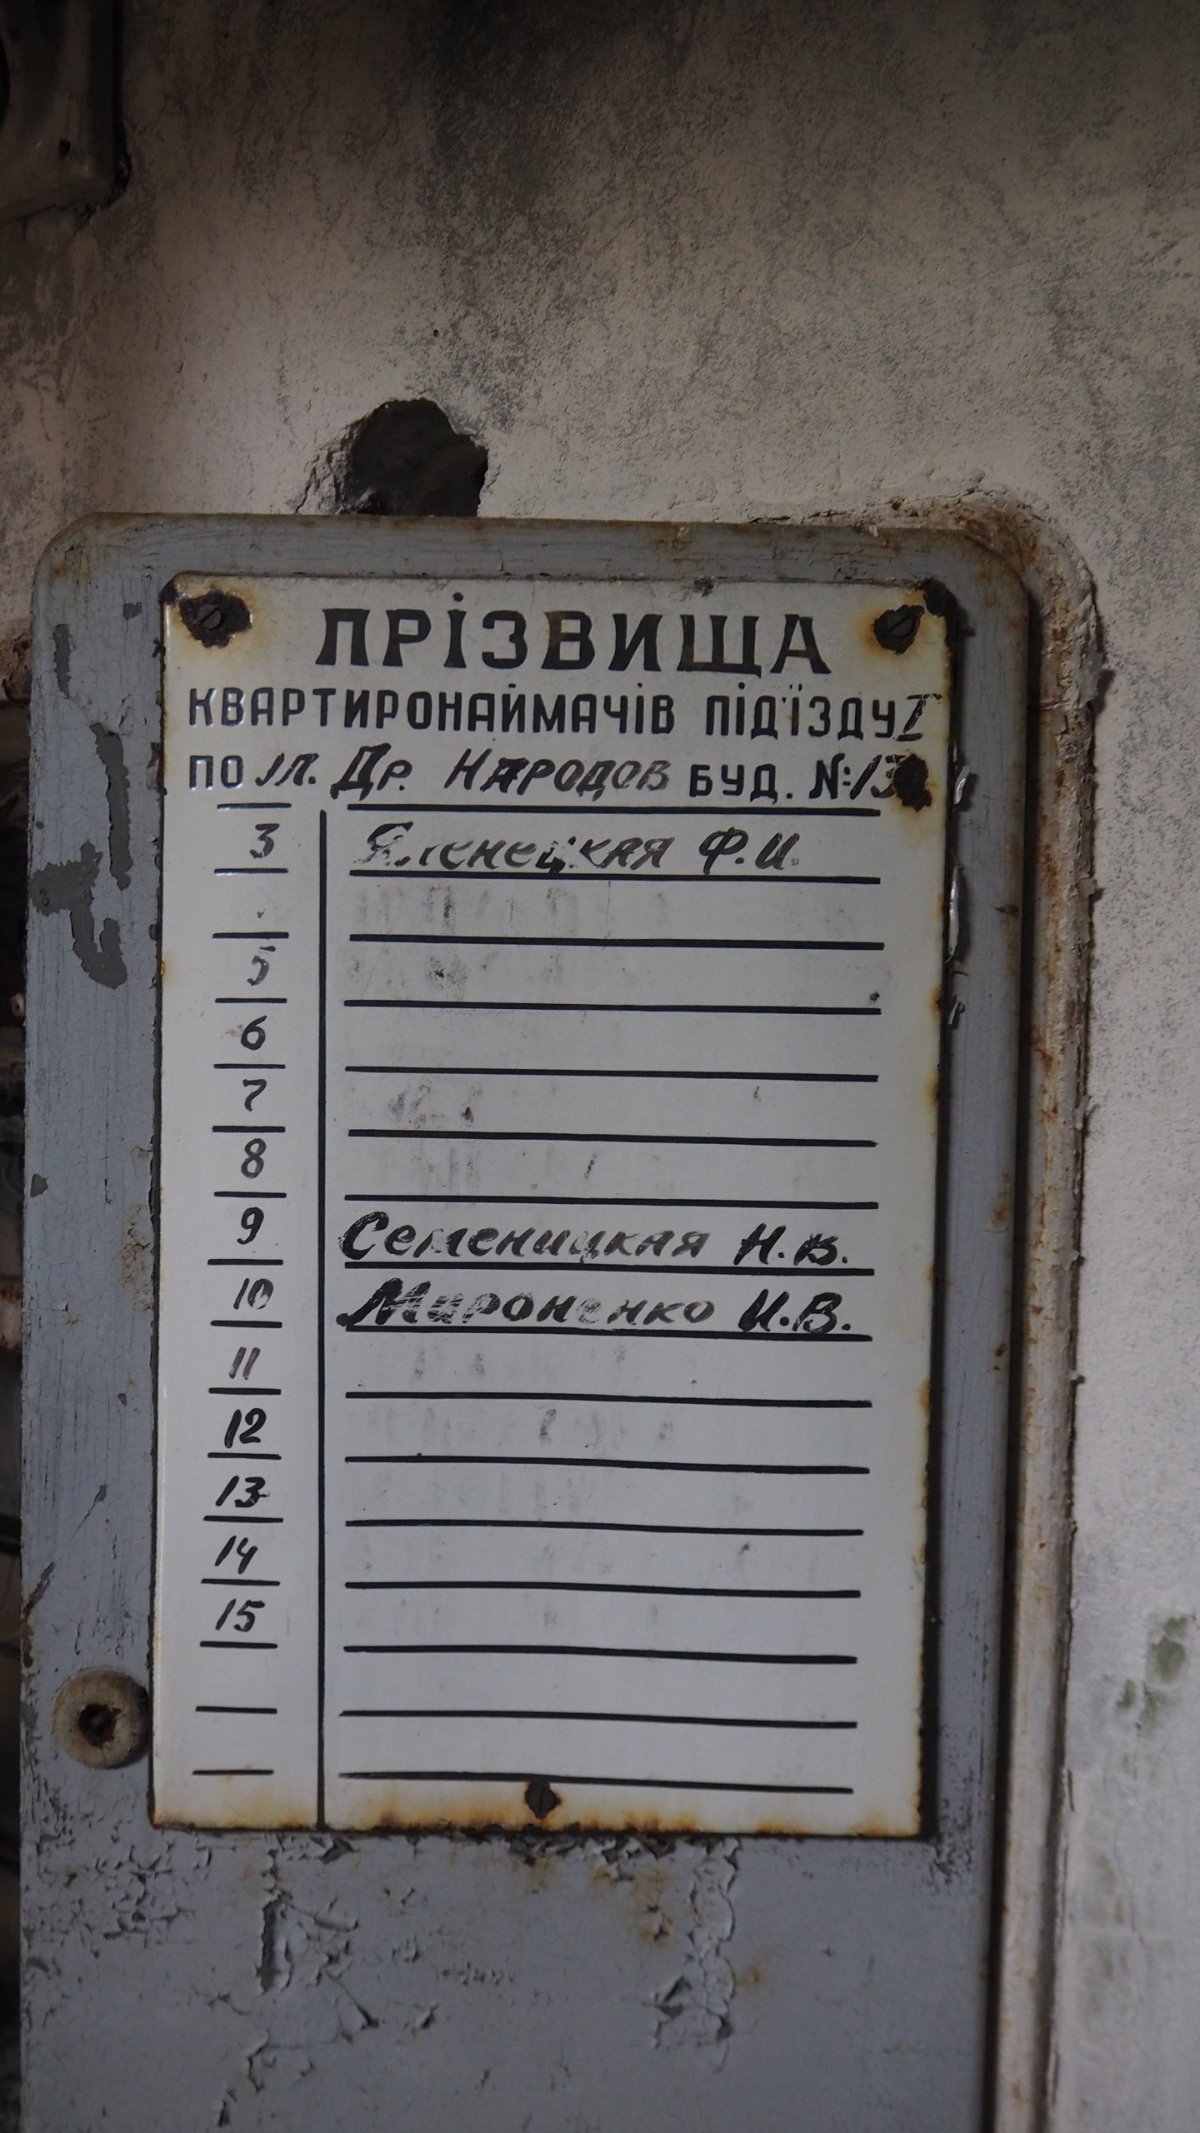 ПРІЗВИЩА
КВАРТИРОНАЙМАЧІВ ПІД'ЇЗДУ I
ПО УЛ. ДР. НАРОДОВ БУД. №13
3 Ф.И.
5
6
7
8
9 Семеницкая Н.В.
10 Мироненко И.В.
11
12
13
14
15